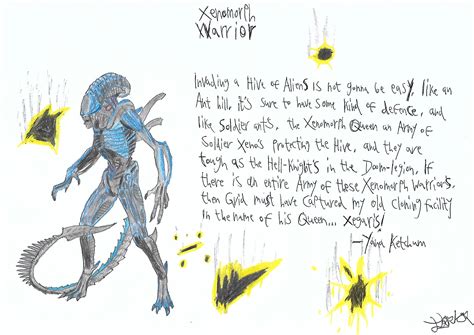 Xenomorph
Warrior
Invading a Hive of Aliens is not gonna be easy, like an
Ant hill, it's sure to have some kind of defence, and
like Soldier ants, the Xenomorph Queen an Army of
Soldier Xenos protecting the Hive, and they are
tough as the Hell-Knights in the Doom-legion, If
there is an entire Army of these Xenomorph Warriors,
then Grid must have captured my old cloning facility
In the name of his Queen... Xegaris!
-Yaina Ketchum